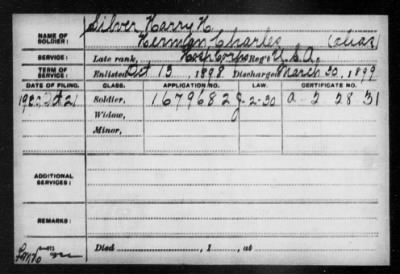 Silver Harry H
NAME OF SOLDIER: Herman, Charles (alias)
SERVICE: Late rank, Hosp Corps Reg't U.S.A.
TERM OF SERVICE: Enlisted Oct 13, 1898, Discharged March 30, 1899
DATE OF FILING. CLASS. APPLICATION NO. LAW. CERTIFICATE NO.
Oct 21 Soldier, 1679682 J-2-30 A-5 28 31
Widow,
Minor,
ADDITIONAL SERVICES:
REMARKS:
Died , 1 , at